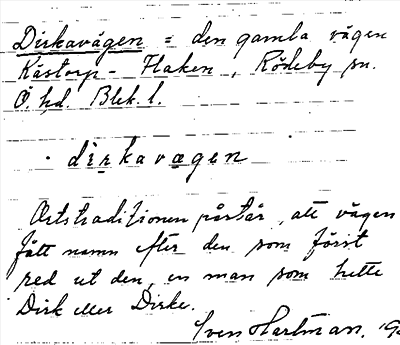 Dirkavägen = den gamla vägen
Kästorp - Flaken, Rödeby sn.
Ö hd. Blek. l.
· dirkavægen
Ortstraditionen påstår, att vägen
fått namn efter den som först
red ut den, en man som hette
Dirk eller Dirke.
Sven Hartman.